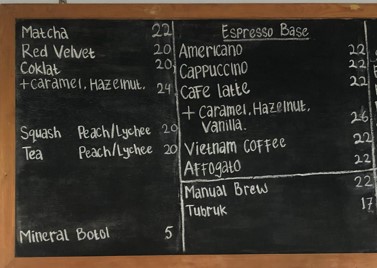 Matcha 22
Red Velvet 20
Coklat 20
+Caramel, Hazelnut. 24
Squash Peach/Lychee 20
Tea Peach/Lychee 20
Mineral Botol 5
Espresso Base
Americano 22
Cappuccino 22
Cafe latte 22
+ Caramel, Hazelnut,
Vanilla. 26
Vietnam Coffee 22
Affogato 22
Manual Brew 22
Tubruk 17